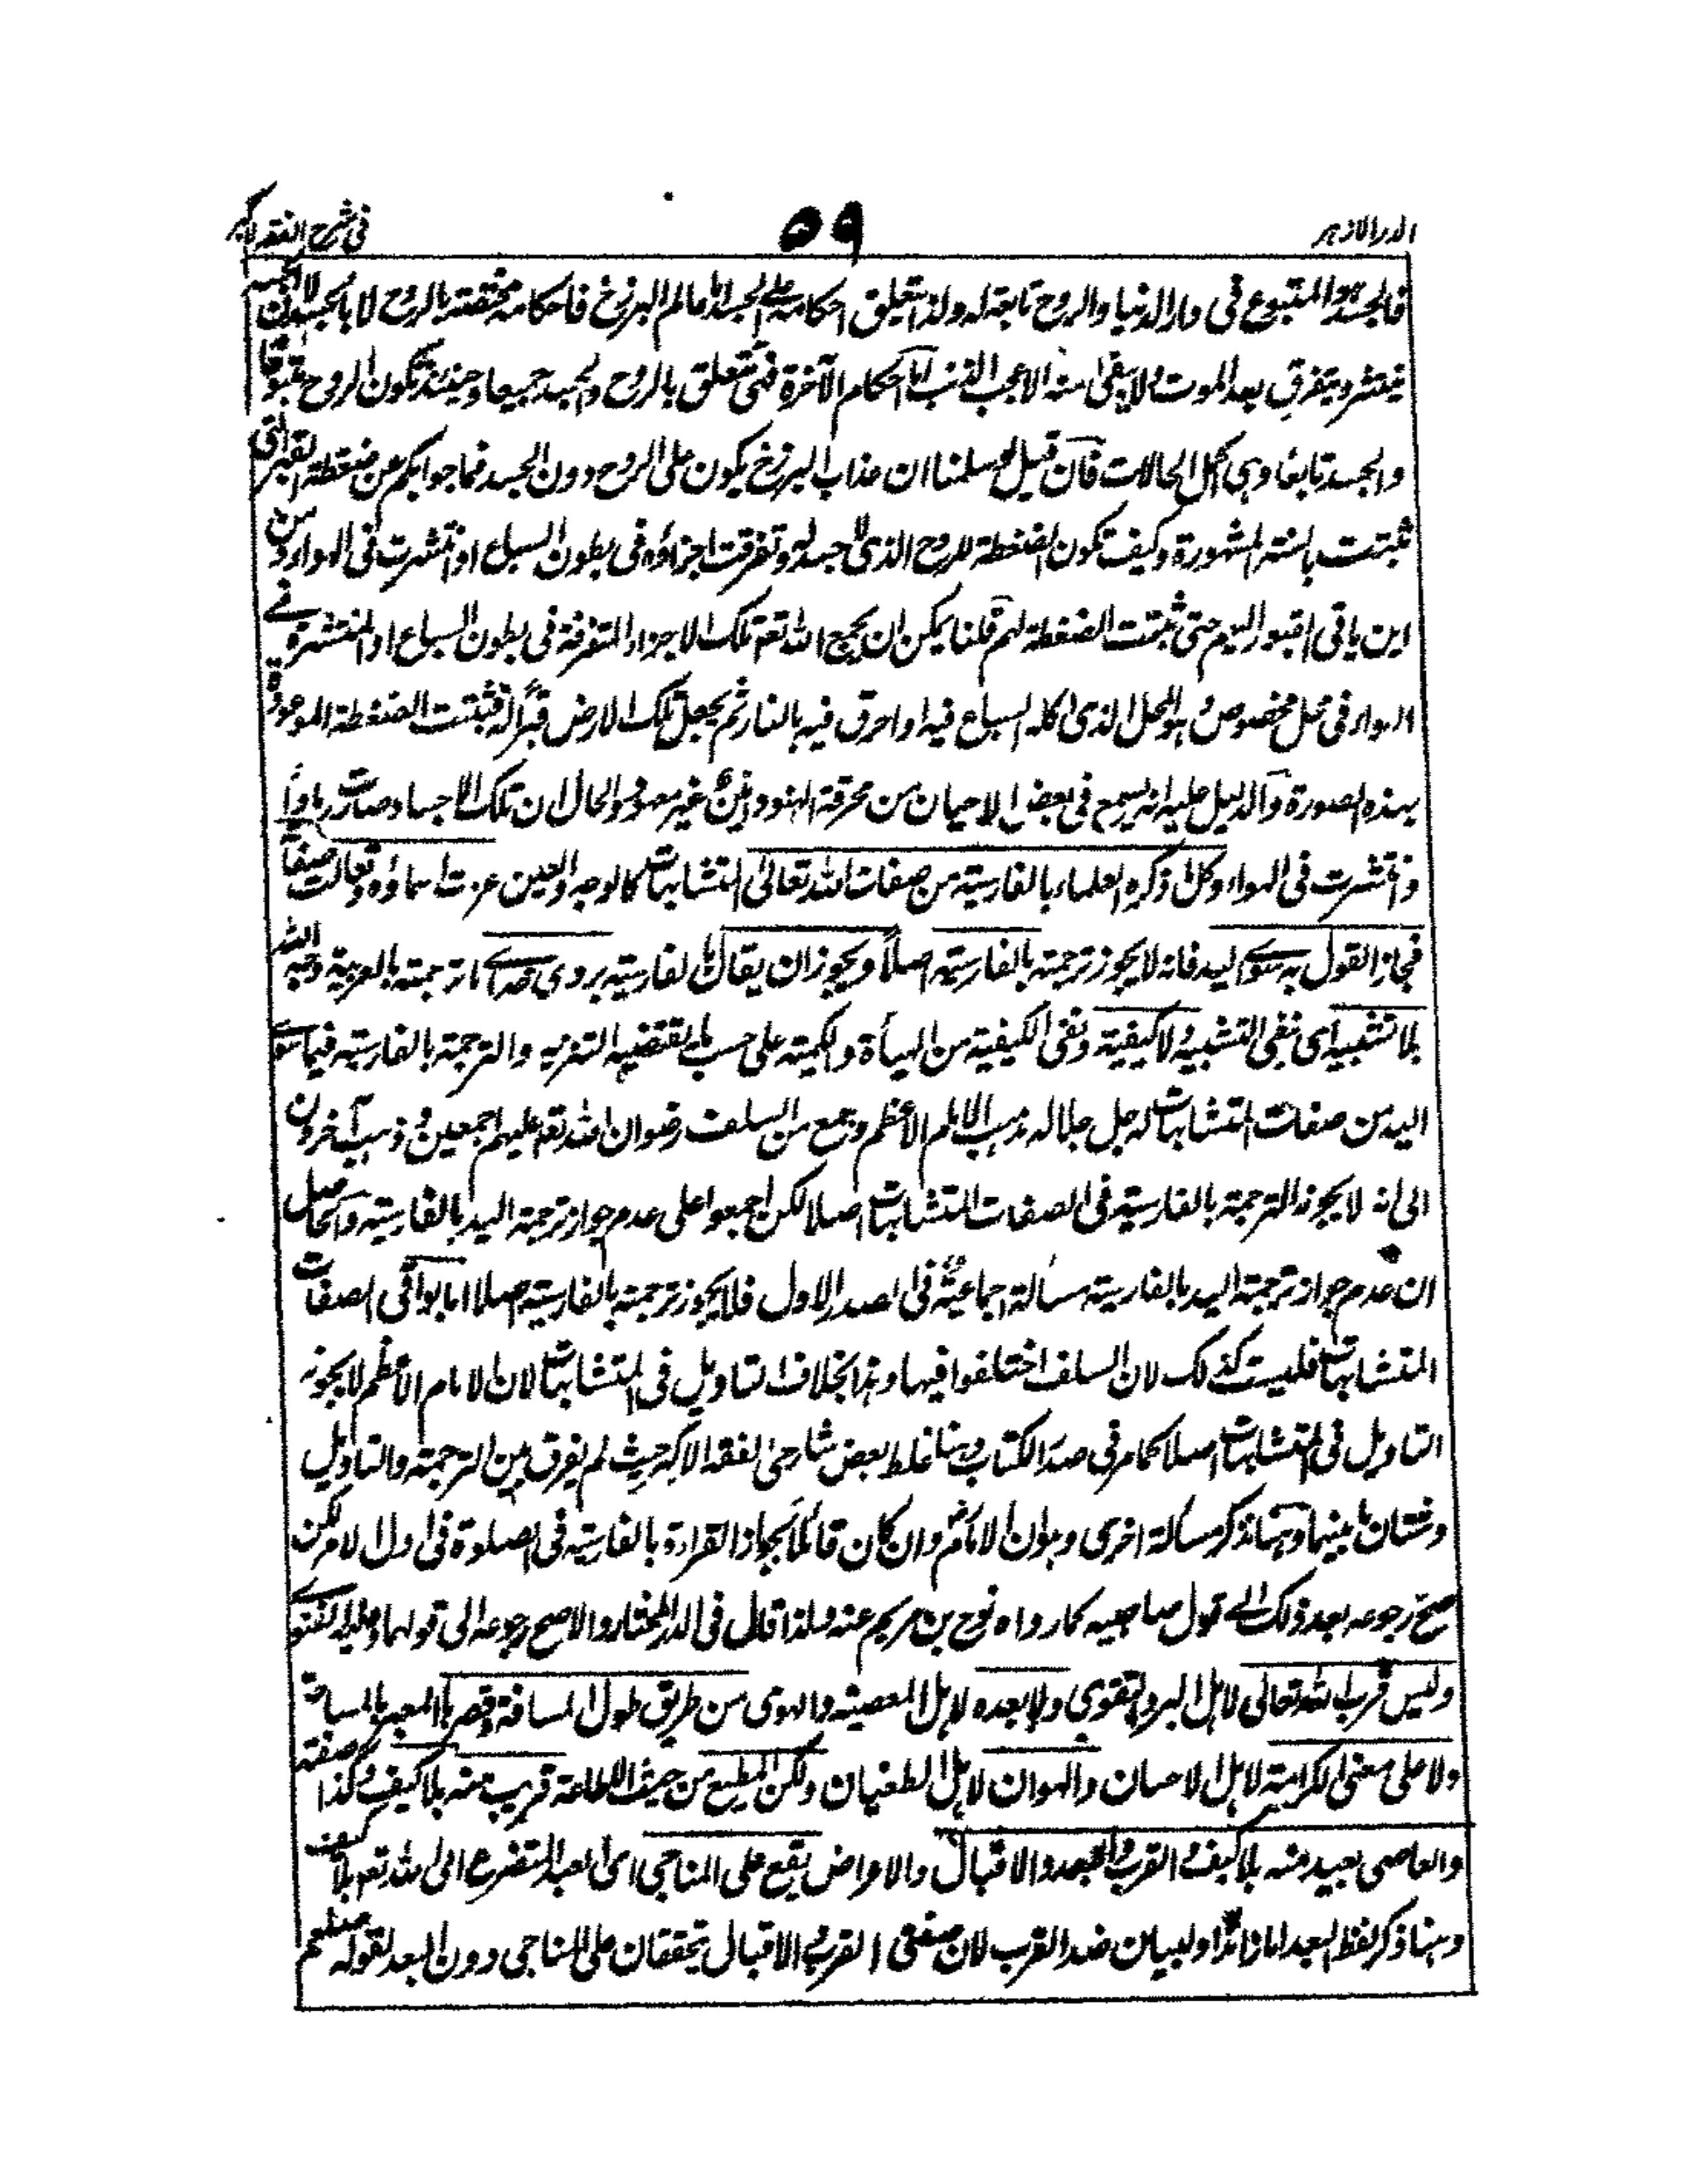 الدر الازهر
٥٩
فی شرح الفقہ الاکبر
فالجسد ہو المتبوع فی دار الدنیا والروح تابعۃ لہ ولذا تتعلق احکامہ علی الجسد اما عالم البرزخ فاحکامہ مختصۃ بالروح لا بالجسد لان الجسد
ینتشر ویتفرق بعد الموت ولا یبقی منہ الا عجب الذنب اما احکام الآخرۃ فہی تتعلق بالروح والجسد جمیعا وحینئذ تکون الروح متبوعا
والجسد تابعا وہی اکمل الحالات فان قیل لو سلمنا ان عذاب البرزخ یکون علی الروح دون الجسد فما جوابکم عن ضغطۃ القبر التی
ثبتت بالسنۃ المشہورۃ وکیف تکون الضغطۃ للروح الذی لا جسد لہ وتفرقت اجزاؤہ فی بطون السباع او انتشرت فی الہواء ومن
این یاتی القبور الیہم حتی ثبتت الضغطۃ لہم قلنا یمکن ان یجمع اللہ تعہ تلک الاجزاء المتفرقۃ فی بطون السباع او المنتشرۃ فے
الہواء فی محل مخصوص وہو المحل الذی اکلہ السباع فیہ او احرق فیہ بالنار ثم یجعل تلک الارض قبرًا لہ فثبتت الضغطۃ الموعودۃ
بہذہ الصورۃ والدلیل علیہ انہ یسمع فی بعض الاحیان من محرقۃ الہنود انین غیر معہود والحال ان تلک الاجساد صارت رمادًا
وانتشرت فی الہواء وکل ما ذکرہ العلماء بالفارسیۃ من صفات اللہ تعالی المتشابہات کالوجہ والعین عزت اسماؤہ وتعالت صفاتہ
فجاز القول بہ سوے الید فانہ لا یجوز ترجمتہ بالفارسیۃ اصلاً ویجوز ان یقال بالفارسیۃ بروی خداے ما ترجمتہ بالعربیۃ وجہ اللہ
بلا تشبیہ ای بنفی التشبیہ ولا کیفیۃ ونفی الکیفیۃ من الہیأۃ والکمیۃ علی حسب ما یقتضیہ التنزیہ والترجمۃ بالفارسیۃ فیما سوے
الید من صفات المتشابہات لہ جل جلالہ مذہب الامام الاعظم وجمع من السلف رضوان اللہ تعہ علیہم اجمعین وذہب آخرون
الی انہ لا یجوز الترجمۃ بالفارسیۃ فی الصفات المتشابہات اصلا لکن اجمعوا علی عدم جواز ترجمۃ الید بالفارسیۃ والحاصل
ان عدم جواز ترجمۃ الید بالفارسیۃ مسألۃ اجماعیۃ فی الصدر الاول فلا یجوز ترجمتہ بالفارسیۃ اصلا اما بواقی الصفات
المتشابہات فلیست کذلک لان السلف اختلفوا فیہا وہذا بخلاف التاویل فی المتشابہات لان الامام الاعظم لا یجوز
التاویل فی المتشابہات اصلا کما مر فی صدر الکتاب وہنا غلط بعض شارحی الفقہ الاکبر حیث لم یفرق بین الترجمۃ والتاویل
وشتان ما بینہما وہہنا نذکر مسألۃ اخری وہو ان الامام رضہ وان کان قائلًا بجواز القراءۃ بالفارسیۃ فی الصلوۃ فی اول الامر لکن
صح رجوعہ بعد ذلک الے قول صاحبیہ کما رواہ نوح بن مریم عنہ ولذا قال فی الدر المختار والاصح رجوعہ الی قولہما وعلیہ الفتوے
ولیس قرب اللہ تعالی لاہل البر والتقوی ولا بعدہ لاہل المعصیۃ والہوی من طریق طول المسافۃ وقصرہا المعبر بالمساحۃ
ولا علی معنی الکرامۃ لاہل الاحسان والہوان لاہل الطغیان ولکن المطیع من حیث الاطاعۃ قریب منہ بلا کیف وکذا صفتہ
والعاصی بعید منہ بلا کیف والقرب والبعد والاقبال والاعراض یقع علی المناجی ای العبد المتضرع الی اللہ تعہ بلا کیف
وہہنا ذکر لفظ البعد اما زائدًا او لبیان ضد القرب لان صفتی القرب والاقبال یتحققان علی المناجی دون البعد لقولہ صلعم